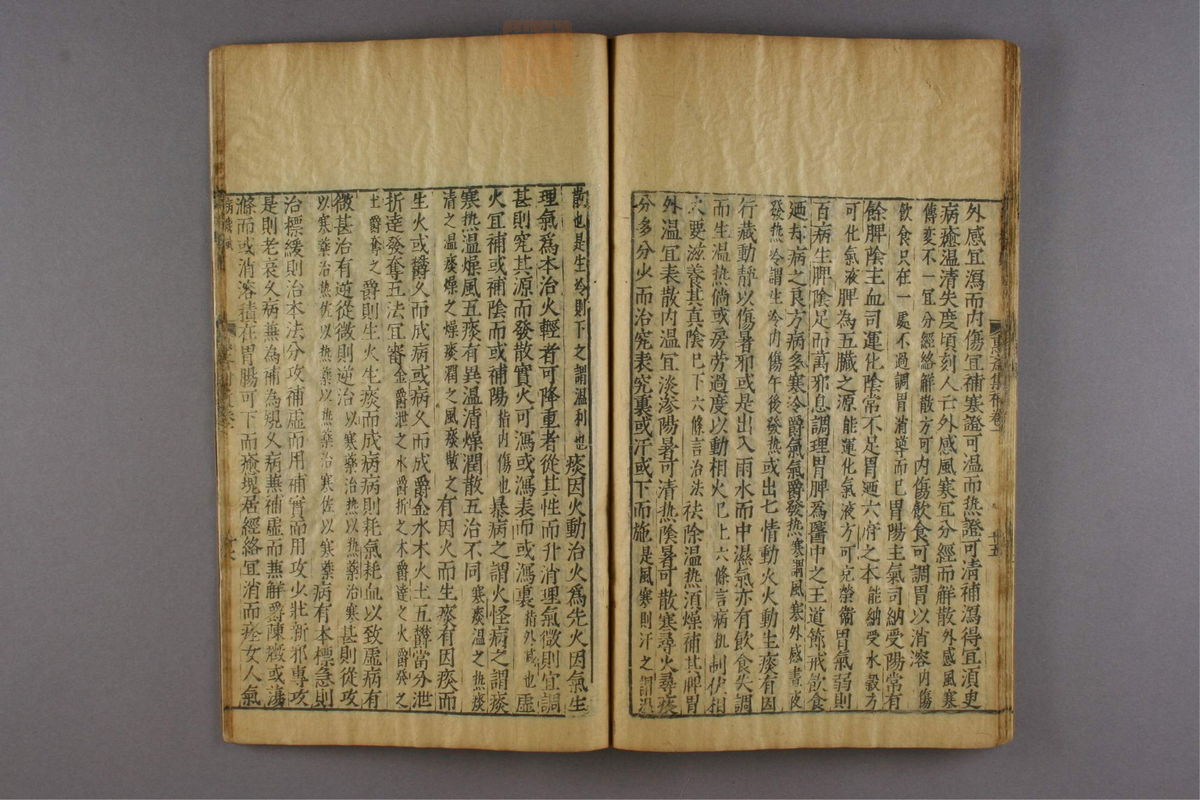 外感宜瀉而内傷宜補寒證可温而热證可清補瀉得宜湏臾
病癒温清失度頃刻人亡外感風寒宜分經而觧散外感風寒
傳变不一宜分經絡觧散方可内傷飲食可調胃以消溶内傷
飲食只在一處不過調胃消導而已胃陽主氣司納受陽常有
餘脾陰主血司運化陰常不足胃廼六府之本能納受水穀方
可化氣液脾為五臟之源能運化氣液方可充榮衛胃氣弱則
百病生脾陰足而萬邪息調理胃脾爲醫中之王道節戒飲食
廼却病之良方病多寒冷欝氣氣欝發热寒謂風寒外感晝夜
發热冷謂生冷内傷午後發热或出七情動火火動生痰有因
行藏動静以傷暑邪或是出入雨水而中濕氣亦有飲食失調
而生温热倘或房劳過度以動相火已上六條言病机制伏相
火要滋養其真陰已下六條言治法祛除温热湏燥補其脾胃
外温宜表散内温宜淡渗陽暑可清热陰暑可散寒尋火尋痰
分多分少而治究表究裏或汗或下而施是風寒則汗之謂温
散也是生冷則下之謂温利也痰因火動治火爲先火因氣生
理氣爲本治火輕者可降重者從其性而升消理氣微則宜調
甚則究其源而發散實火可瀉或瀉表而或瀉裏指外感也虚
火宜補或補陰而或補陽指内傷也暴病之謂火怪病之謂痰
寒热温燥風五痰有異温清燥潤散五治不同寒痰温之热痰
清之温痰燥之燥痰潤之風痰散之有因火而生痰有因痰而
生火或欝久而成病或病久而成欝金水木火土五欝當分泄
折達發奪五法宜審金欝泄之水欝折之木欝達之火欝發之
土欝奪之欝則生火生痰而成病病則耗氣耗血以致虚病有
微甚治有逆從微則逆治以寒藥治热以热藥治寒甚則從攻
以寒藥治热佐以热藥以热藥治寒佐以寒藥病有本標急則
治標緩則治本法分攻補虚而用補實而用攻少壯新邪專攻
是則老衰久病兼為補為規久病兼補虚而兼觧欝陳癥或蕩
滌而或消溶積在胃腸可下而癒塊居經絡宜消而痊女人氣